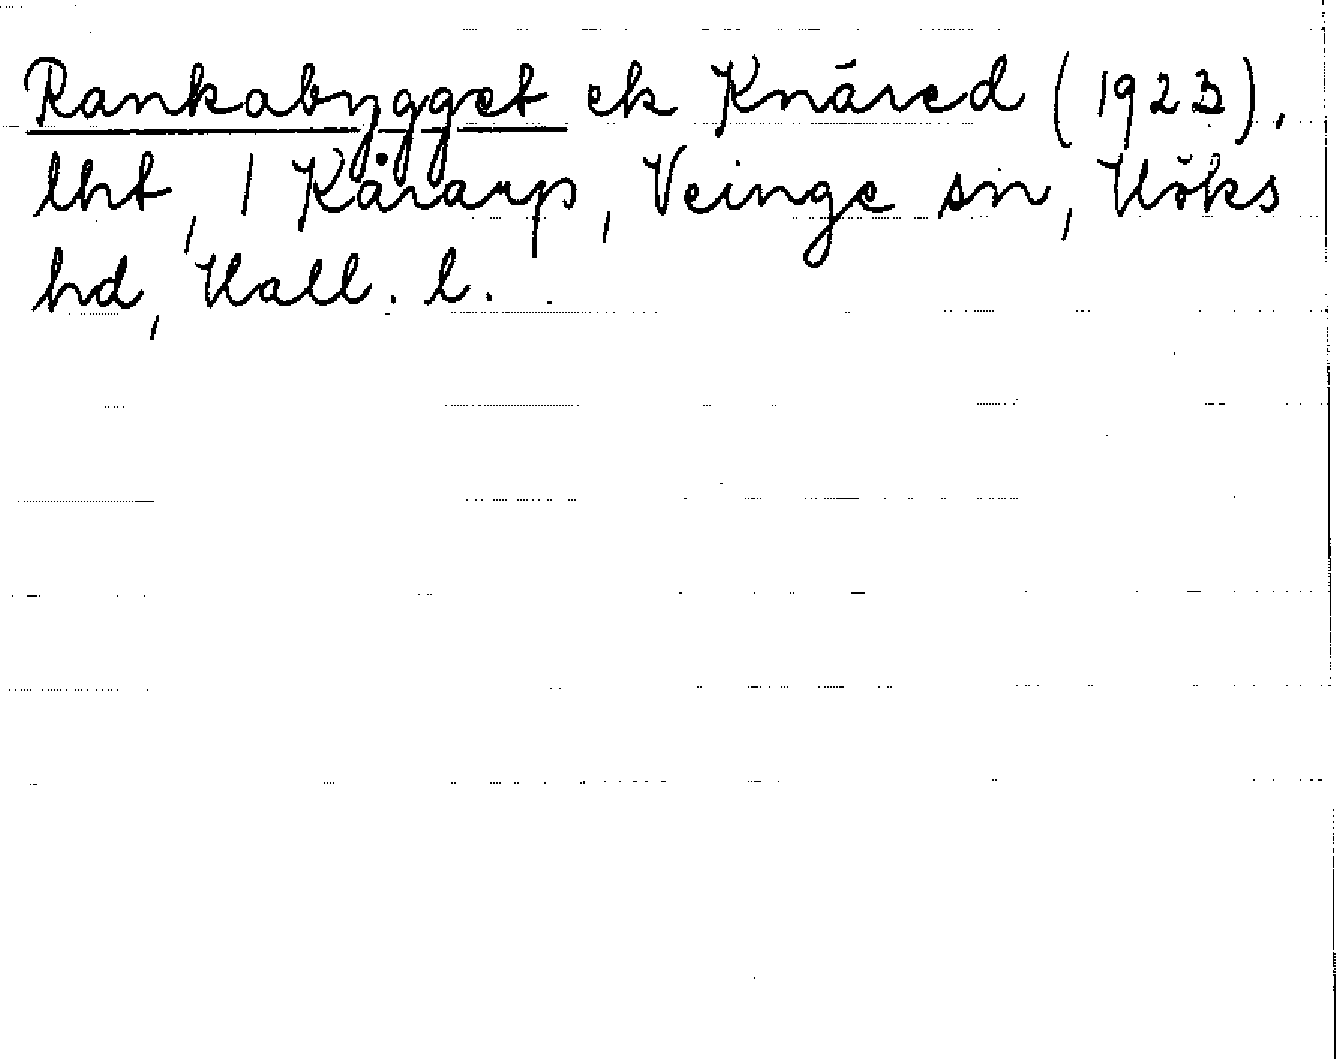 Rankabygget ek Knäred (1923).
lht, 1 Kåraup, Veinge sn, Höks
hd, Hall. l.